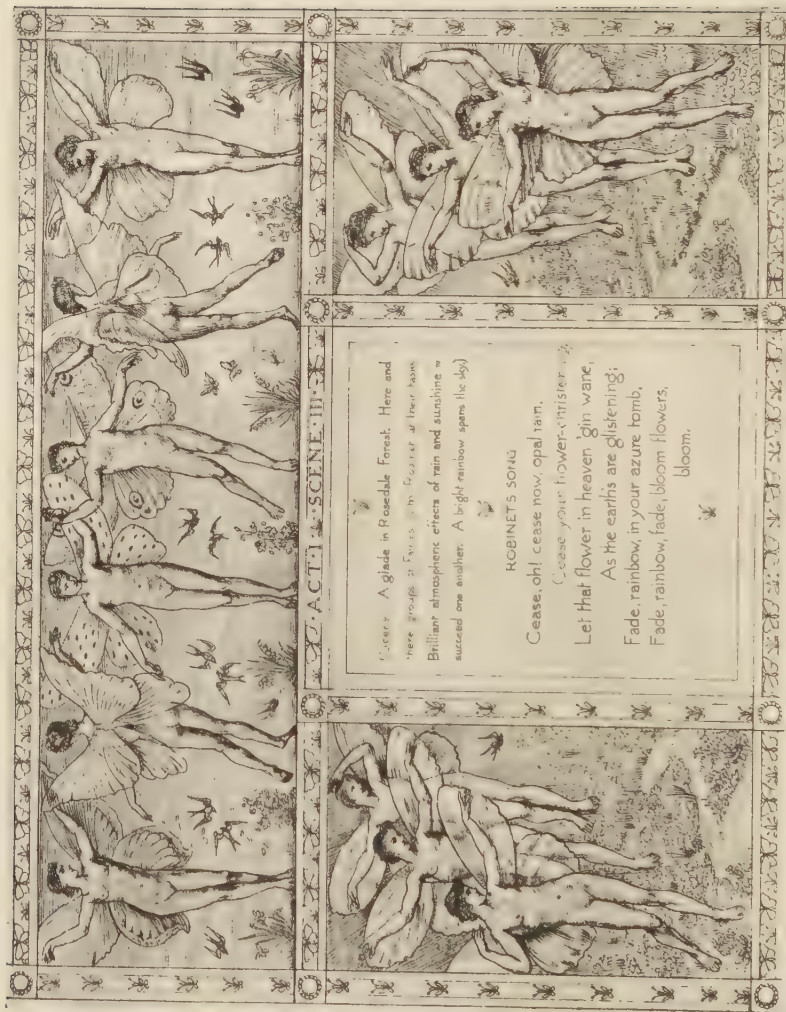 ·ACT·I·SCENE·III·
A glade in Rosedale Forest. Here and
there groups of Fairies
Brilliant atmospheric effects of rain and sunshine
succeed one another. A bright rainbow spans the sky)
ROBINETS SONG
Cease, oh! cease now, opal rain,
Cease your flower-
Let that flower in heaven 'gin wane,
As the earths are glistening;
Fade, rainbow, in your azure tomb,
Fade, rainbow, fade, bloom flowers,
bloom.